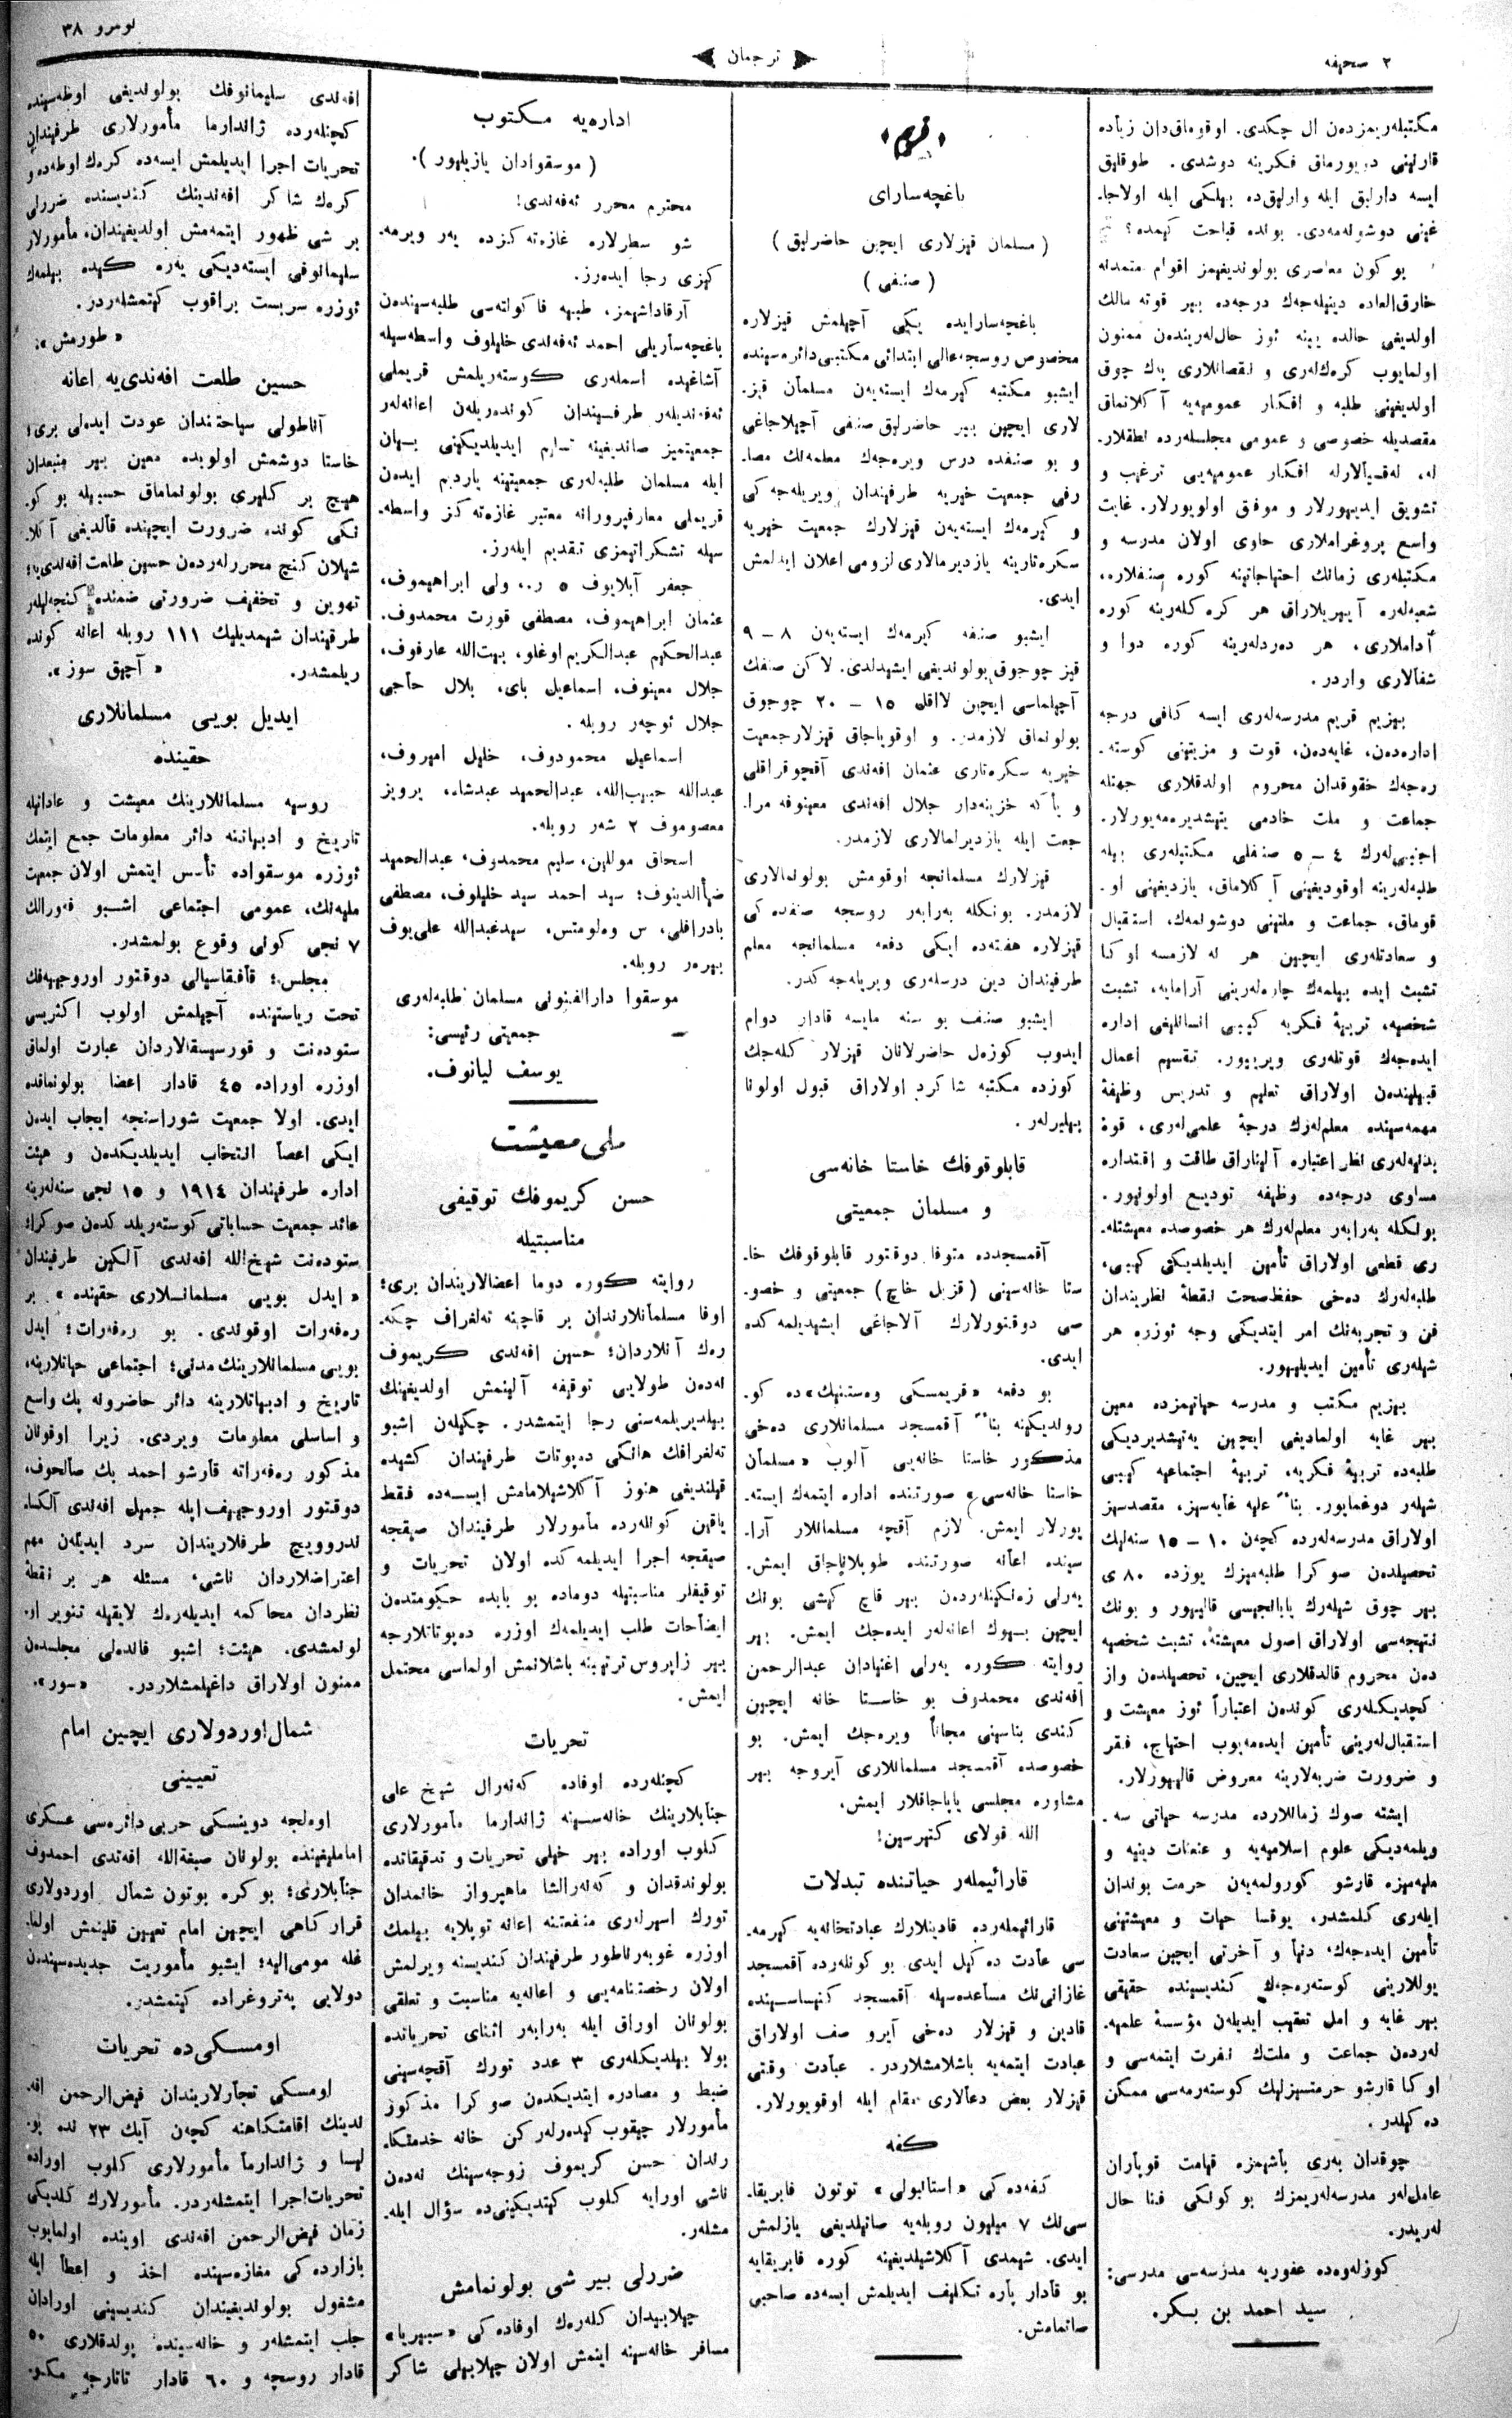 ٢ صحیفه
ترجمان
نومرو ٣٨
مكتبلەریمزدەن ال چكدی. اوقوماق‌دان زیاده
قارنینی دویورماق فكرینه دوشدی. طوقلیق
ایسه دارلیق ایله وارلیق‌ده بیلكی ایله اولاجا-
غینی دوشونەمەدی. بونده قباحت كیمده؟
بو كون معاصری بولوندیغیمز اقوام متمدنه
خارق‌العاده دینیله‌جەك درجەده بیر قوته مالك
اولدیغی حالده یینه ئوز حال‌لەریندەن ممنون
اولمایوب كرەك‌لەری و نقصانلاری پەك چوق
اولدیغینی طلبه و افكار عمومیەیه آكلاتماق
مقصدیله خصوصی و عمومی مجلسلەرده نطقلار-
له، لەقسیالارله افكار عمومیەیی ترغیب و
تشویق ایدییورلار و موفق اولویورلار. غایت
واسع پروغراملاری حاوی اولان مدرسه و
مكتبلەری زمانك احتیاجاتینه كوره صنفلاره،
شعبەلەره آییریلاراق هر كرەكلەرینه كوره
آداملاری، هر دەردلەرینه كوره دوا و
شفالاری واردر.
بیزیم قریم مدرسەلەری ایسه كافی درجه
ادارەدەن، غایەدەن، قوت و مزیتینی كوسته-
رەجەك حقوقدان محروم اولدقلاری جهتله
جماعت و ملت خادمی یتیشدیرەمەیورلار.
اجنبی‌لەرك ٤ — ٥ صنفلی مكتبلەری بیله
طلبەلەرینه اوقودیغینی آكلاماق، یازدیغینی او-
قوماق، جماعت و ملتینی دوشونمەك، استقبال
و سعادتلەری ایچین هر نه لازمسه اوكا
تشبث ایده بیلمەك چارەلەرینی آراماینه، تشبث
شخصیه، تربیۀ فكریه كیبی انسانلیغی اداره
ایدەجەك قوتلەری ویرییور. تقسیم اعمال
قبیلیندەن اولاراق تعلیم و تدریس وظیفۀ
مهمەسینده معلم‌لەرك درجۀ علمی‌لەری، قوۀ
بدنیەلەری نظر اعتباره آلیناراق طاقت و اقتداره
مساوی درجەده وظیفه تودیع اولونیور.
بونكله بەرابەر معلم‌لەرك هر خصوصده معیشتلە-
ری قطعی اولاراق تأمین ایدیلدیكی كیبی،
طلبەلەرك دەخی حفظ‌صحت نقطۀ نظریندان
فن و تجربەنك امر ایتدیكی وجه ئوزره هر
شیلەری تأمین ایدیلییور.
بیزیم مكتب و مدرسه حیاتیمزده معین
بیر غایه اولمادیغی ایچین یەتیشدیردیكی
طلبەده تربیۀ فكریه، تربیۀ اجتماعیه كیبی
شیلەر دوغمایور. بناءً علیه غایەسیز، مقصدسیز
اولاراق مدرسەلەرده كچەن ١٠ — ١٥ سنەلیك
تحصیلدەن صوكرا طلبەمیزك یوزده ٨٠ ی
بیر چوق شیلەرك یابانجیسی قالییور و بونك
نتیجەسی اولاراق اصول معیشتە، تشبث شخصیه
دەن محروم قالدقلاری ایچین، تحصیلدەن واز
كچدیكلەری كوندەن اعتباراً ئوز معیشت و
استقبال‌لەرینی تأمین ایدەمەیوب احتیاج، فقر
و ضرورت ضربەلارینه معروض قالییورلار.
ایشته صوك زمانلارده مدرسه حیاتی سه-
ویلمەدیكی علوم اسلامیەیه و عنعنات دینیه و
ملیەمیزه قارشو كورولمەیەن حرمت بوندان
ایلەری كلمشدر، یوقسا حیات و معیشتینی
تأمین ایدەجەك، دنیا و آخرتی ایچین سعادت
یوللارینی كوستەرەجەك كندیسینده حقیقی
بیر غایه و امل تعقیب ایدیلەن مؤسسۀ علمیه-
لەردەن جماعت و ملتك نفرت ایتمەسی و
اوكا قارشو حرمتسیزلیك كوستەرمەسی ممكن
دەكیلدر.
چوقدان بەری باشیمزه قیامت قوپاران
عامل‌لەر مدرسەلەریمزك بو كونكی فنا حال
لەریدر.
كوزلەوەده غفوریه مدرسەسی مدرسی:
سید احمد بن بكر.
قریم
باغچەسارای
(مسلمان قیزلاری ایچین حاضرلیق)
(صنفی)
باغچەسارایده یكی آچیلمش قیزلاره
مخصوص روسجه عالی ابتدائی مكتبی دائرەسینده
ایشبو مكتبه كیرمەك ایستەیەن مسلمان قیز-
لاری ایچین بیر حاضرلیق صنفی آچیلاجاغی
و بو صنفده درس ویرەجەك معلمەنك مصا-
رفی جمعیت خیریه طرفیندان ویریلەجەكی
و كیرمەك ایستەیەن قیزلارك جمعیت خیریه
سكرەتارینه یازدیرمالاری لزومی اعلان ایدلمش
ایدی.
ایشبو صنفه كیرمەك ایستەیەن ٨ – ٩
قیز چوجوق بولوندیغی ایشیدلدی. لاكن صنفك
آچیلماسی ایچین لااقل ١٥ – ٢٠ چوجوق
بولونماق لازمدر. و اوقویاجاق قیزلار جمعیت
خیریه سكرەتاری عثمان افەندی آقچوقراقلی
و یاكه خزینەدار جلال افەندی معینوفه مرا-
جعت ایله یازدیرلمالاری لازمدر.
قیزلارك مسلمانجه اوقومش بولونمالاری
لازمدر. بونكله بەرابەر روسجه صنفدەكی
قیزلاره هفتەده ایكی دفعه مسلمانجه معلم
طرفیندان دین درسلەری ویریلەجەكدر.
ایشبو صنف بو سنه مایسه قادار دوام
ایدوب كوزەل حاضرلانان قیزلار كلەجك
كوزده مكتبه شاكرد اولاراق قبول اولونا
بیلیرلەر.
قابلوقوفك خاستا خانەسی
و مسلمان جمعیتی
آقمسجدده متوفا دوقتور قابلوقوفك خا-
ستا خانەسینی (قزیل خاچ) جمعیتی و خصو-
صی دوقتورلارك آلاجاغی ایشیدیلمەكده
ایدی.
بو دفعه «قریمسكی وەستنیك»ده كو-
رولدیكینه بناءً آقمسجد مسلمانلاری دەخی
مذكور خاستا خانەیی آلوب «مسلمان
خاستا خانەسی» صورتنده اداره ایتمەك ایسته-
یورلار ایمش. لازم آقچه مسلمانلار آرا-
سینده اعانه صورتنده طوپلانیاجاق ایمش.
یەرلی زەنكینلەردەن بیر قاچ كیشی بونك
ایچین بیوك اعانەلەر ایدەجك ایمش. بیر
روایته كوره یەرلی اغنیادان عبدالرحمن
افەندی محمدوف بو خاستا خانه ایچین
كندی بناسینی مجاناً ویرەجك ایمش. بو
خصوصده آقمسجد مسلمانلاری آیروجه بیر
مشاوره مجلسی یاپاجاقلار ایمش.
الله قولای كتیرسین!
قارائیملەر حیاتنده تبدلات
قارائیملەرده قادینلارك عبادتخانەیه كیرمە-
سی عادت دەكیل ایدی. بو كونلەرده آقمسجد
غازانی‌نك مساعدەسیله آقمسجد كنیساسینده
قادین و قیزلار دەخی آیرو صف اولاراق
عبادت ایتمەیه باشلامشلاردر. عبادت وقتی
قیزلار بعض دعالاری مقام ایله اوقویورلار.
كفه
كفەدەكی «استانبولی» توتون فابریقا-
سی‌نك ٧ میلیون روبلەیه صاتیلدیغی یازلمش
ایدی. شیمدی آكلاشیلدیغینه كوره فابریقایه
بو قادار پاره تكلیف ایدیلمش ایسەده صاحبی
صاتمامش.
ادارەیه مكتوب
(موسقوادان یازیلیور).
محترم محرر ئەفەندی!
شو سطرلاره غازەتەكزده یەر ویرمە-
كیزی رجا ایدەرز.
آرقاداشیمز، طبیه فاكولتەسی طلبەسیندەن
باغچەسارایلی احمد ئەفەندی خلیلوف واسطەسیله
آشاغیده اسملەری كوستەریلمش قریملی
ئەفەندیلەر طرفیندان كوندەریلەن اعانەلەر
جمعیتمیز صاندیغینه تسلیم ایدیلدیكینی بیان
ایله مسلمان طلبەلەری جمعیتینه یاردیم ایدەن
قریملی معارفپرورانه معتبر غازەتەكز واسطه-
سیله تشكراتیمزی تقدیم ایلەرز.
جعفر آبلایوف ٥ ر.، ولی ابراهیموف،
عثمان ابراهیموف، مصطفی قورت محمدوف،
عبدالحكیم عبدالكریم اوغلو، بیت‌الله عارفوف،
جلال معینوف، اسماعیل بای، بلال حاجی
جلال ئوچەر روبله.
اسماعیل محمودوف، خلیل امیروف،
عبدالله حبیب‌الله، عبدالحمید عبدشاه، پرویز
معصوموف ٢ شەر روبله.
اسحاق موللین، سلیم محمدوف، عبدالحمید
ضیاالدینوف؛ سید احمد سید خلیلوف، مصطفی
بادراقلی، س وەلومتس، سیدعبدالله علی‌یوف
بیرەر روبله.
موسقوا دارالفنونی مسلمان طلبەلەری
جمعیتی رئیسی:
یوسف لیانوف.
ملی معیشت
حسن كریموفك توقیفی
مناسبتیله
روایته كوره دوما اعضالاریندان بری؛
اوفا مسلمانلارندان بر قاچینه تەلغراف چكه-
رەك آنلاردان؛ حسن افەندی كریموف
نەدەن طولایی توقیفه آلینمش اولدیغینك
بیلدیریلمەسنی رجا ایتمشدر. چكیلەن اشبو
تەلغرافك هانكی دەپوتات طرفیندان كشیده
قیلندیغی هنوز آكلاشیلامامش ایسەده فقط
یاقین كونلەرده مأمورلار طرفیندان صیقجه
صیقجه اجرا ایدیلمەكده اولان تحریات و
توقیفلر مناسبتیله دوماده بو بابده حكومتدەن
ایضاحات طلب ایدیلمەك اوزره دەپوتاتلارجه
بیر زاپروس ترتیبینه باشلانمش اولماسی محتمل
ایمش.
تحریات
كچنلەرده اوفاده كەنەرال شیخ علی
جنابلارینك خانەسینه ژاندارما مأمورلاری
كلوب اوراده بیر خیلی تحریات و تدقیقاتده
بولوندقدان و كەنەرالشا ماهپرواز خانمدان
تورك اسیرلەری منفعتنه اعانه توپلایه بیلمك
اوزره غوبەرناطور طرفیندان كندیسنه ویرلمش
اولان رخصتنامەیی و اعانەیه مناسبت و تعلقی
بولونان اوراق ایله بەرابەر اثنای تحریاتده
بولا بیلدیكلەری ٣ عدد تورك آقچەسینی
ضبط و مصادره ایتدیكدەن صوكرا مذكور
مأمورلار چیقوب كیدەرلەركن خانه خدمتكا-
رندان حسن كریموف زوجەسینك نەدەن
ناشی اورایه كلوب كیتدیكینی‌ده سؤال ایله-
مشلەر.
ضررلی بیر شی بولونمامش
چیلابیدان كلەرەك اوفادەكی «سیبیریا»
مسافر خانەسینه اینمش اولان چیلابیلی شاكر
افەندی سلیمانوفك بولوندیغی اوطەسینده
كچنلەرده ژاندارما مأمورلاری طرفیندان
تحریات اجرا ایدیلمش ایسەده كرەك اوطەده و
كرەك شاكر افەندینك كندیسنده ضررلی
بر شی ظهور ایتمەمش اولدیغیندان، مأمورلار
سلیمانوفی ایستەدیكی یەره كیده بیلمەك
ئوزره سربست براقوب كیتمشلەردر.
«طورمش».
حسین طلعت افەندی‌یه اعانه
آناطولی سیاحتندان عودت ایدەلی بری؛
خاستا دوشمش اولوبده معین بیر منبعدان
هیچ بر كلیری بولونماماق حسبیله بو كو-
نكی كونده ضرورت ایچینده قالدیغی آكلا-
شیلان كنج محررلەردەن حسین طلعت افەندی‌یه؛
تهوین و تخفیف ضرورتی ضمنده كنجەلیلەر
طرفیندان شیمدیلیك ١١١ روبله اعانه كونده
ریلمشدر. «آچیق سوز».
ایدیل بویی مسلمانلاری
حقینده
روسیه مسلمانلارینك معیشت و عاداتیله
تاریخ و ادبیاتنه دائر معلومات جمع ایتمك
ئوزره موسقواده تأسس ایتمش اولان جمعیت
ملیەنك، عمومی اجتماعی اشبو فەورالك
٧ نجی كونی وقوع بولمشدر.
مجلس؛ قافقاسیالی دوقتور اوروجییەفك
تحت ریاستنده آچیلمش اولوب اكثریسی
ستودەنت و قورسیستقالاردان عبارت اولماق
اوزره اوراده ٤٥ قادار اعضا بولونماقده
ایدی. اولا جمعیت شوراسنجه ایجاب ایدەن
ایكی اعضا انتخاب ایدیلدیكدەن و هیئت
اداره طرفیندان ١٩١٤ و ١٥ نجی سنەلەرینه
عائد جمعیت حساباتی كوستەریلدكدەن صوكرا؛
ستودەنت شیخ‌الله افەندی آلكین طرفیندان
«ایدل بویی مسلمانلاری حقینده» بر
رەفەرات اوقوندی. بو رەفەرات؛ ایدل
بویی مسلمانلارینك مدنی؛ اجتماعی حیاتلارینه،
تاریخ و ادبیاتلارینه دائر حاضرونه پك واسع
و اساسلی معلومات ویردی. زیرا اوقونان
مذكور رەفەراته قارشو احمد بك صالحوف،
دوقتور اوروجییف ایله جمیل افەندی آلكسا-
ندروویچ طرفلاریندان سرد ایدیلەن مهم
اعتراضلاردان ناشی، مسئله هر بر نقطۀ
نظردان محاكمه ایدیلەرەك لایقیله تنویر او-
لونمشدی. هیئت؛ اشبو فائدەلی مجلسدەن
ممنون اولاراق داغیلمشلاردر. «سوز».
شمال اوردولاری ایچین امام
تعیینی
اولجه دوینسكی حربی دائرەسی عسكری
اماملیغینده بولونان صبغةالله افەندی احمدوف
جنابلاری؛ بو كره بوتون شمال اوردولاری
قرارگاهی ایچین امام تعیین قیلنمش اولما-
غله مومی‌الیه؛ ایشبو مأموریت جدیدەسیندەن
دولایی پەتروغراده كیتمشدر.
اومسكی‌ده تحریات
اومسكی تجارلاریندان فیض‌الرحمن افە-
ندینك اقامتكاهنه كچەن آیك ٢٣ نده پو-
لیسا و ژاندارما مأمورلاری كلوب اوراده
تحریات اجرا ایتمشلەردر. مأمورلارك كلدیكی
زمان فیض‌الرحمن افەندی اوینده اولمایوب
بازاردەكی مغازەسینده اخذ و اعطا ایله
مشغول بولوندیغیندان كندیسینی اورادان
جلب ایتمشلەر و خانەسینده بولدقلاری ٥٠
قادار روسچه و ٦٠ قادار تاتارجه مكتو-